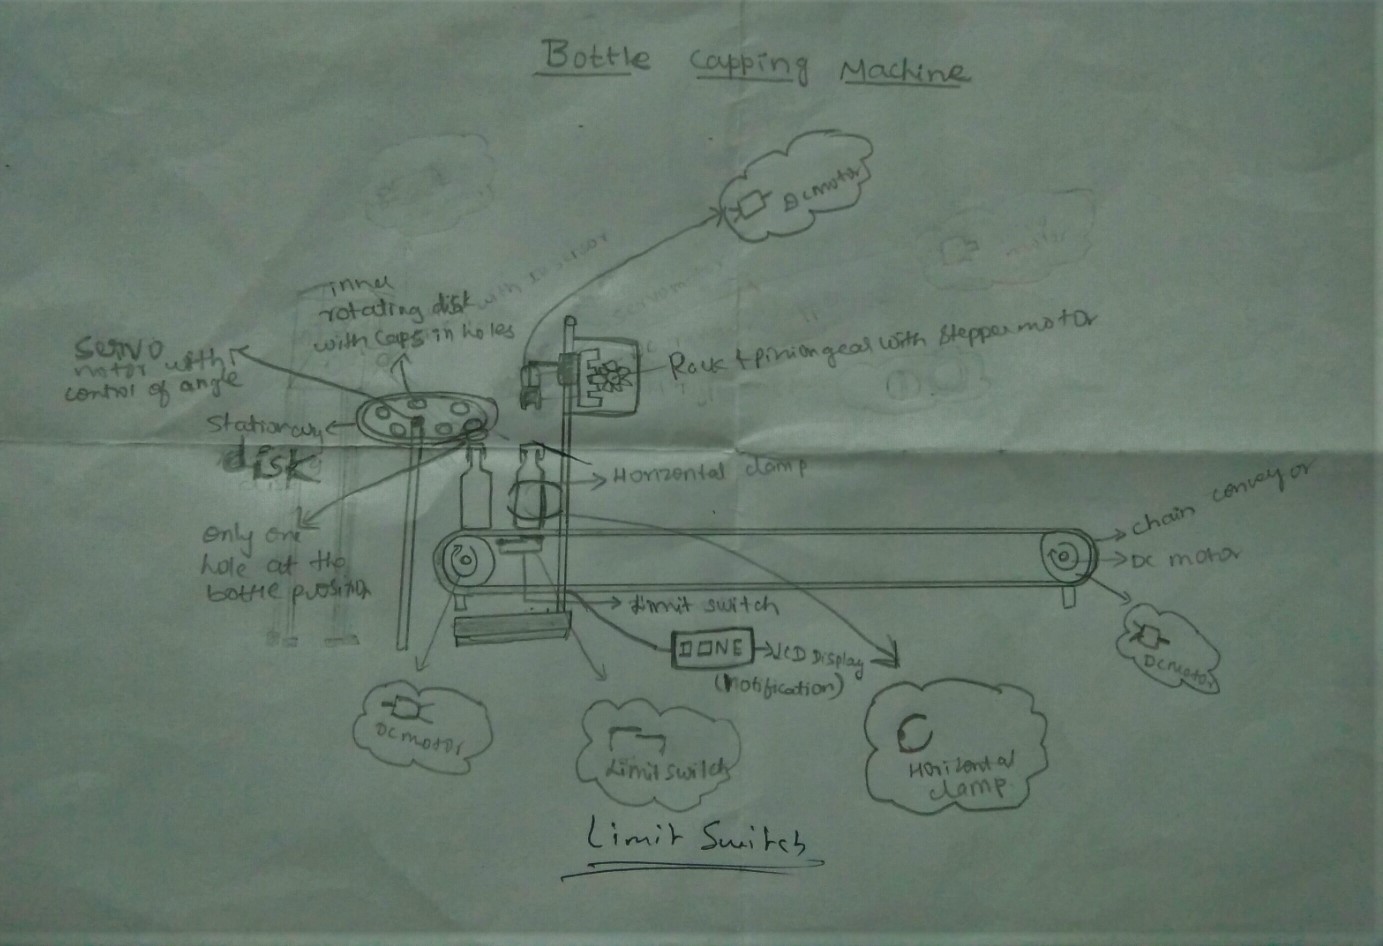 Bottle Capping Machine
DC motor
inner
rotating disk
with caps in holes
Servo
motor with
control of angle
Rack & pinion gear with Stepper motor
Stationary
disk
Horizontal clamp
chain conveyor
DC motor
only one
hole at the
bottle
limit switch
DONE
LCD Display
(Notification)
DC motor
DC motor
Limit switch
Horizontal
clamp
Limit Switch